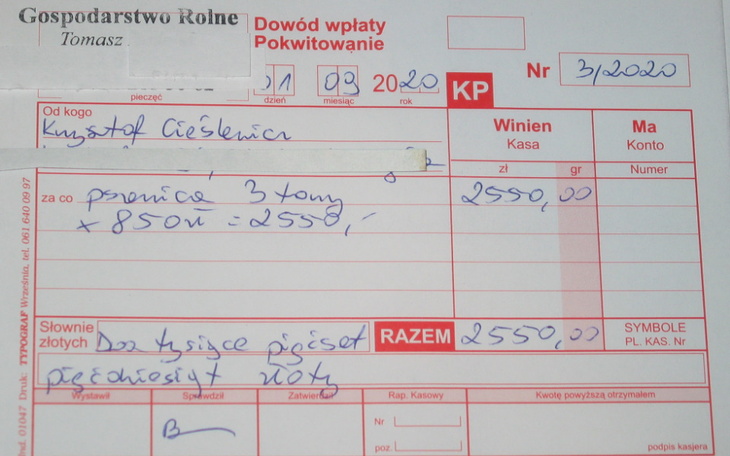 Gospodarstwo Rolne
Tomasz
Dowód wpłaty
Pokwitowanie
Nr 3/2020
01 09 2020
KP
pieczęć dzień miesiąc rok
Od kogo
Krzysztof
Winien
Kasa
Ma
Konto
zł gr Numer
za co pszenica 3 tony 2550,00
x 850zł = 2550,-
Słownie
złotych Dwa tysiące pięćset
RAZEM 2550,00
SYMBOLE
PL. KAS. Nr
pięćdziesiąt złoty
Wystawił Sprawdził Zatwierdził Rap. Kasowy Kwotę powyższą otrzymałem
Nr
poz.
podpis kasjera
Ind. 01047 Druk: TYPOGRAF Września, tel. 061 640 09 97